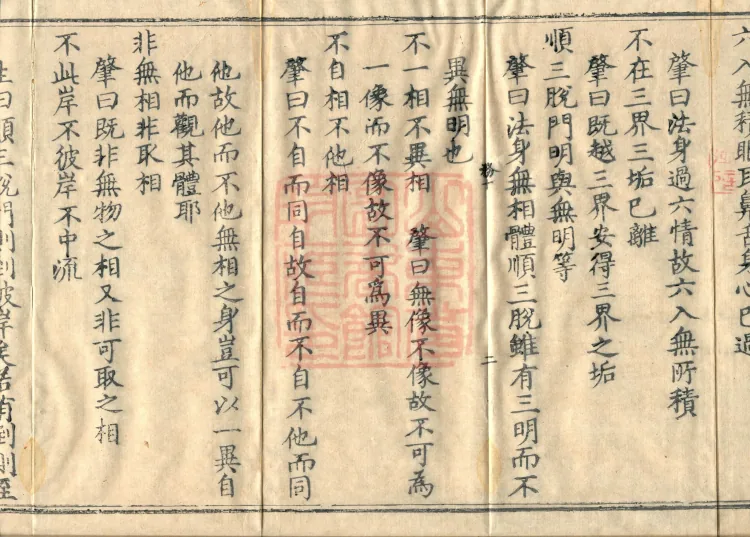 六入無積眼耳鼻舌身心已過
肇曰法身過六情故六入無所積
不在三界三垢已離
肇曰既越三界安得三界之垢
順三脫門明與無明等
肇曰法身無相體順三脫雖有三明而不
異無明也
二
不一相不異相　肇曰無像不像故不可為
一像而不像故不可為異
不自相不他相
肇曰不自而同自故自而不自不他而同
他故他而不他無相之身豈可以一異自
他而觀其體耶
非無相非取相
肇曰既非無物之相又非可取之相
不此岸不彼岸不中流
生曰順三脫門則到彼岸矣若有到則